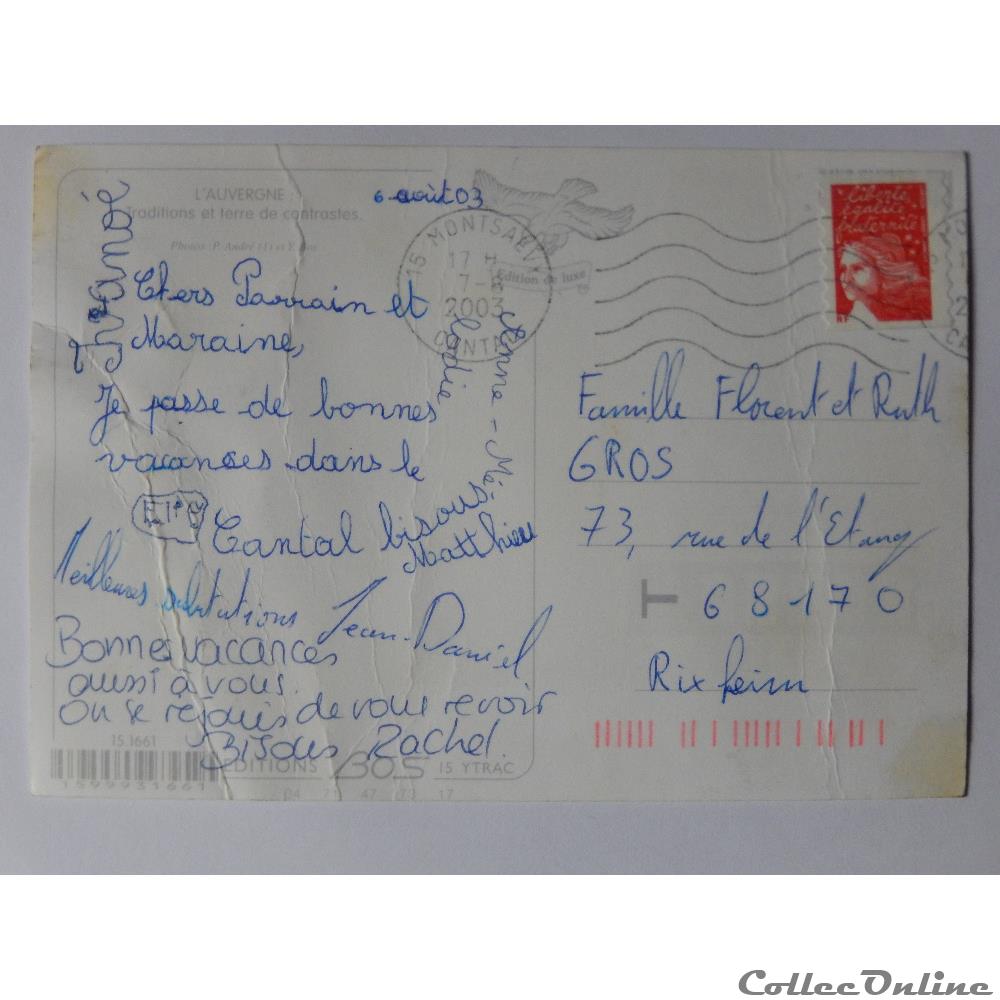 L'AUVERGNE :
Traditions et terre de contrastes.
6 août 03
15 MONTSALVY
17 H
7-8
2003
CANTAL
Edition de luxe
liberté
égalité
fraternité
RF
Chers Parrain et
Maraine,
Je passe de bonnes
vacances dans le
Cantal bisous
Matthieu
Anne-Mé-
lodie
Meilleures
Jean-Daniel
Bonnes vacances
aussi à vous.
On se rejouis de vous revoir
Bisous Rachel.
Famille Florent et Ruth
GROS
73, rue de l'Etang
T 68170
Rixheim
15.1661
EDITIONS BOS 15 YTRAC
1599931661
CollecOnline